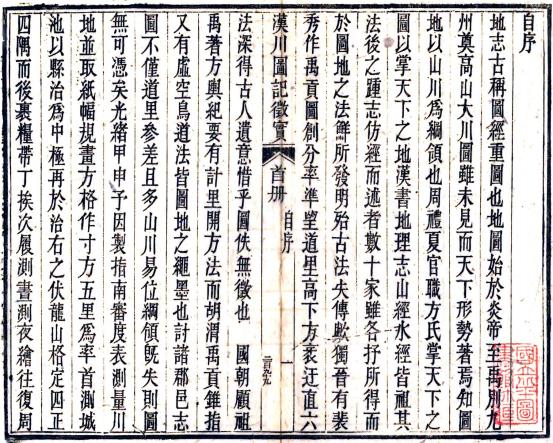 自序
地志古稱圖經重圖也地圖始於炎帝至禹別九
州奠高山大川圖雖未見而天下形勢著焉知圖
地以山川爲綱領也周禮夏官職方氏掌天下之
圖以掌天下之地漢書地理志山經水經皆祖其
法後之踵志仿經而述者數十家雖各抒所得而
於圖地之法鮮所發明殆古法失傳歟獨晉有裴
秀作禹貢圖創分率準望道里高下方袤迂直六
漢川圖記徵實 首册 自序 一
法深得古人遺意惜乎圖佚無徵也 國朝顧祖
禹著方輿紀要有計里開方法而胡渭禹貢錐指
又有虛空鳥道法皆圖地之繩墨也計諸郡邑志
圖不僅道里參差且多山川易位綱領旣失則圖
無可憑矣光緒甲申予因製指南審度表測量川
地並取紙幅規畫方格作寸方五里爲率首測城
池以縣治爲中極再於治右之伏龍山格定四正
四隅而後裹糧帶丁挨次履測晝測夜繪往復周